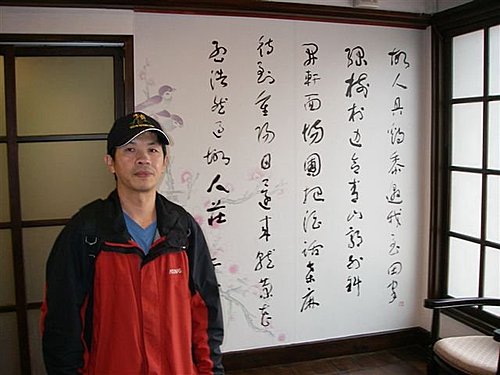 故人具鷄黍邀我至田家
綠樹村邊合青山郭外斜
開軒面場圃把酒話桑麻
待到重陽日還來就菊花
孟浩然過故人莊